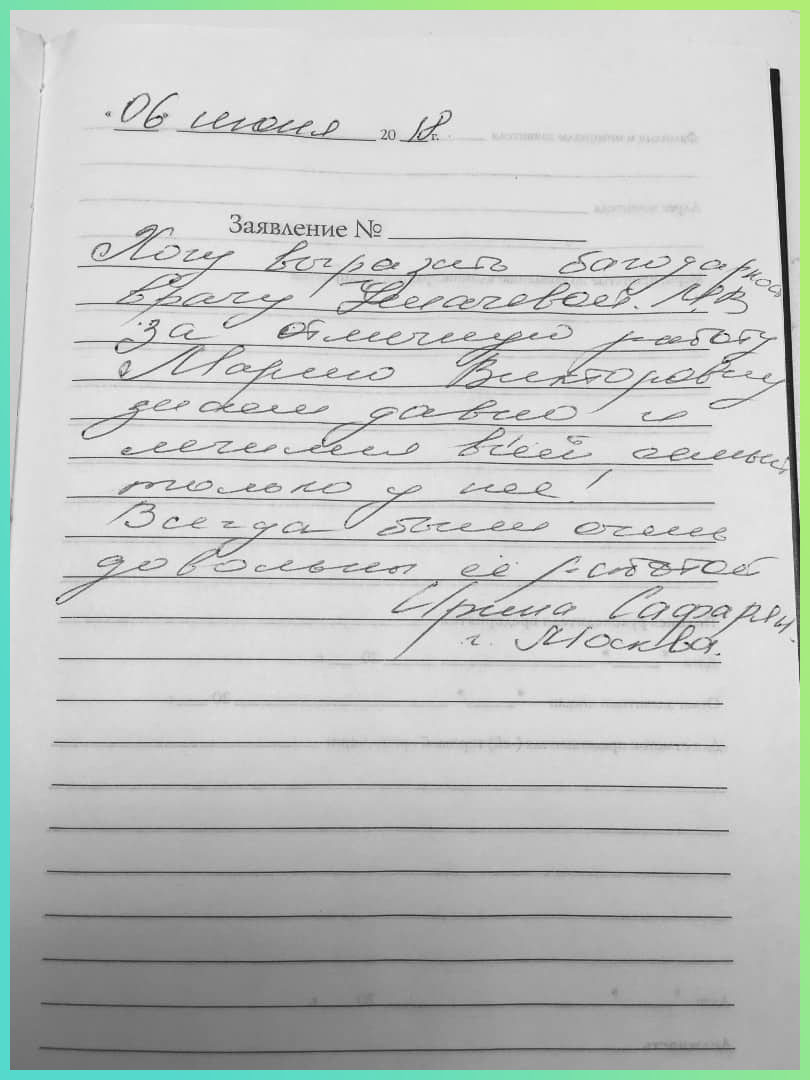 «06» июня 2018г.
Заявление №
Хочу выразить багодарность
врачу М.В
за отличную работу
Марию Викторовну
знаем давно и
лечимся всей семьей
только у нее!
Всегда были очень
довольны её работой
Ирина Сафарян.
г. Москва.